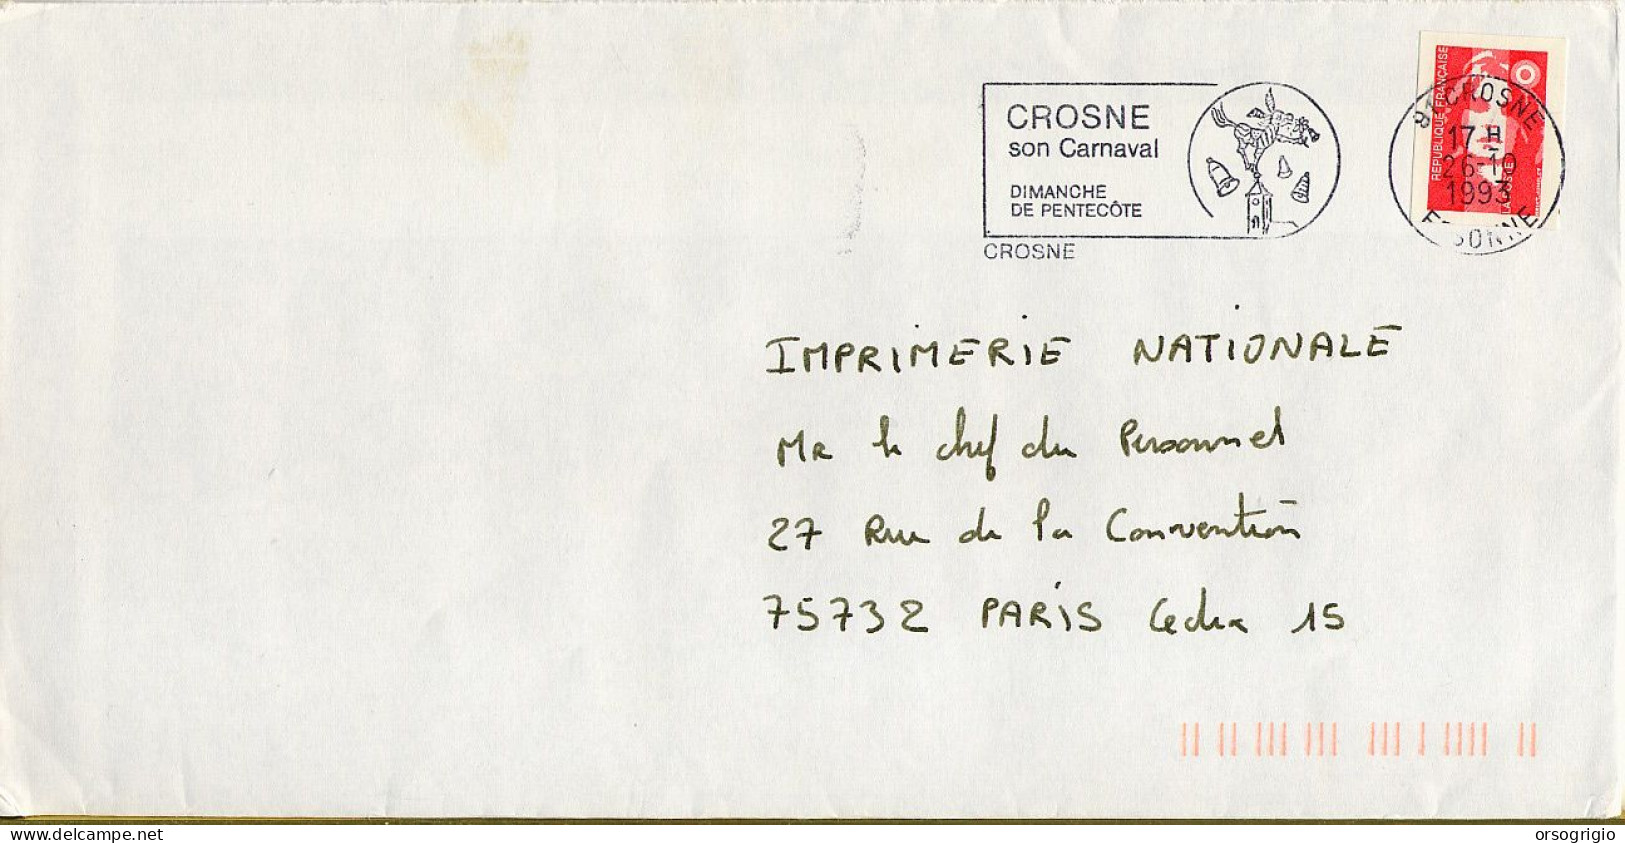 CROSNE
son Carnaval
DIMANCHE
DE PENTECÔTE
CROSNE
RÉPUBLIQUE FRANÇAISE
91 CROSNE
17 H
26-10
1993
IMPRIMERIE NATIONALE
Mr le chef du Personnel
27 Rue de la Convention
75732 PARIS Cedex 15
www.delcampe.net
orsogrigio